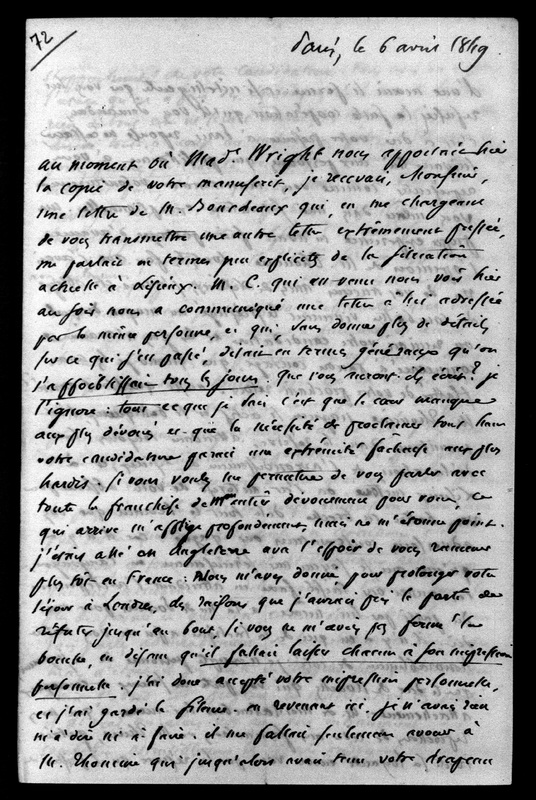 72
Paris, le 6 avril 1849.
au moment où Mad. Wright nous apportait hier
la copie de votre manuscrit, je recevais, Monsieur,
une lettre de M. Bourdeaux qui, en me chargeant
de vous transmettre une autre lettre extrêmement pressée,
me parlait en termes peu explicites de la situation
actuelle à Lisieux. M. C. qui est venu nous voir hier
au soir nous a communiqué une lettre à lui adressée
par la même personne, et qui, sans donner plus de détails
sur ce qui s'est passé, disait en termes généraux qu'on
s'affaiblissait tous les jours. que vous auront-ils écrit? je
l'ignore: tout ce que je sais c'est que le cœur manque
aux plus dévoués et que la nécessité de proclamer tout haut
votre candidature paraît une extrémité fâcheuse aux plus
hardis. Si vous voulez me permettre de vous parler avec
toute la franchise de mon entier dévouement pour vous, ce
qui arrive m'afflige profondément, mais ne m'étonne point.
j'étais allé en Angleterre avec l'espoir de vous ramener
plus tôt en France: Vous m'avez donné, pour prolonger votre
séjour à Londres, des raisons que j'aurais pris le parti de
réfuter jusqu'au bout, si vous ne m'aviez pas fermé la
bouche, en disant qu'il fallait laisser chacun à son impression
personnelle. j'ai donc accepté votre impression personnelle,
et j'ai gardé le silence. en revenant ici, je n'avais rien
ni à dire ni à faire. il me fallait seulement avouer à
M. qui jusqu'alors avait tenu votre drapeau